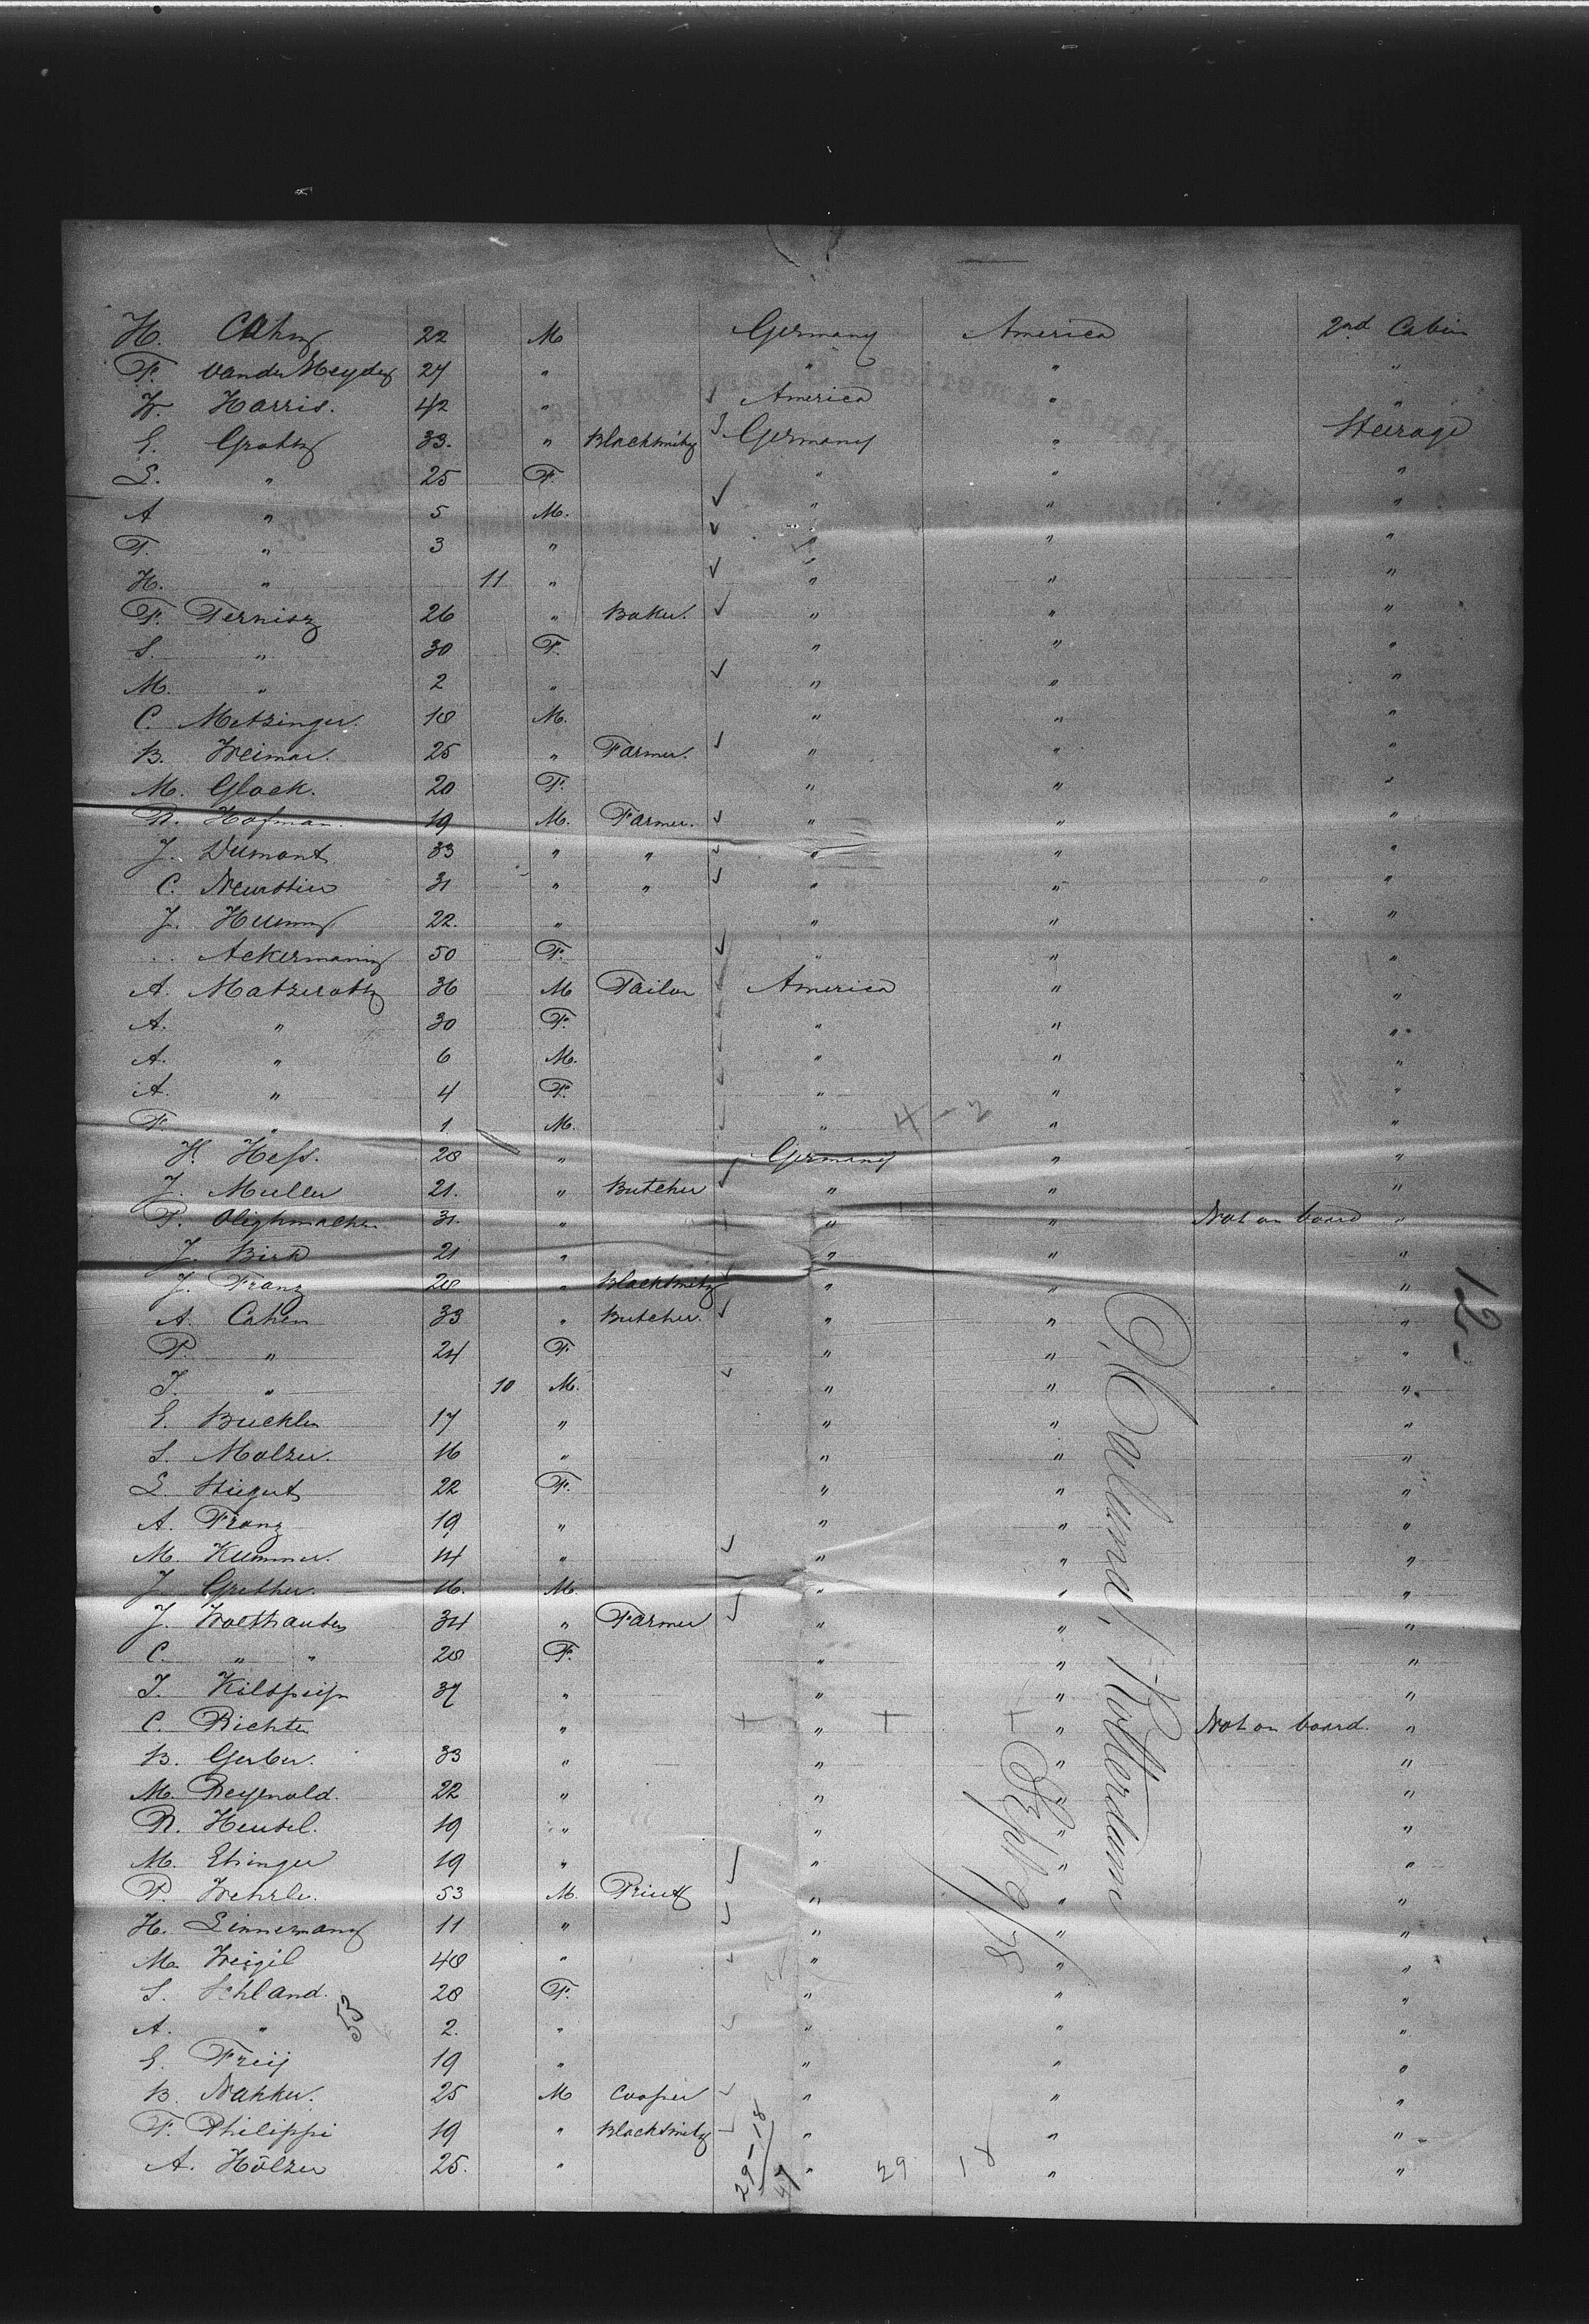 H. Cahn 22 M Germany America 2nd Cabin
F. van der Heyden 27 " " " "
W. Harris. 42 " America " "
E. Groth 33. " Blacksmith Germany " Steerage
L. " 25 F. " " "
A " 5 M. " " "
F. " 3 " " " "
H. " 11 " " " "
F. Ternisz 26 " Baker. " " "
S. " 30 F. " " "
M. " 2 " " " "
C. Metzinger. 18 M. " " "
B. Weimar. 25 " Farmer. " " "
M. Glock. 20 F. " " "
R. Hofman. 19 M. Farmer. " " "
J. Dumont 33 " " " " "
C. Neurstien 31 " " " " "
J. Hummf 22. " " " "
Ackermann 50 F. " " "
A. Matzeroth 36 M Tailor America " "
A. " 30 F. " " "
A. " 6 M. " " "
A. " 4 F. " " "
F. " 1 M. " 4-2 " "
H. Hess. 28 " Germany " "
J. Muller 21. " Butcher " " "
P. Olighmacher 31. " " " Not on board "
J. Birk 21 " " " "
J. Franz 28 " Blacksmith " " "
A. Cahen 33 " Butcher. " " "
P. " 24 F. " " "
J. " 10 M. " " "
E. Buckler 17 " " " "
S. Molzer. 16 " " " "
L. Stiegert 22 F. " " "
A. Franz 19 " " " "
M. Kummer. 14 " " " "
J. Grether. 16. M. " " "
J. Wolthausen 34 " Farmer " " "
C. " " 28 F. " " "
J. 37 " " " "
C. Richter " " " Not on board. "
B. Gerber. 33 " " " "
M. Reynold. 22 " " " "
R. Heusel. 19 " " " "
M. Etinger 19 " " " "
P. Wehrle. 53 M. Priest " " "
H. Linnemann 11 " " " "
M. Weigil 48 " " " "
S. Schland. 28 F. " " "
A. " 2. " " " "
E. Freij 19 " " " "
B. Nakker. 25 M Cooper " " "
F. Philippi 19 " Blacksmith " " "
A. Hölzer 25. " " " "
53
29-18
47
29 18
12-
P. Caland, Rotterdam
Sept 9/78